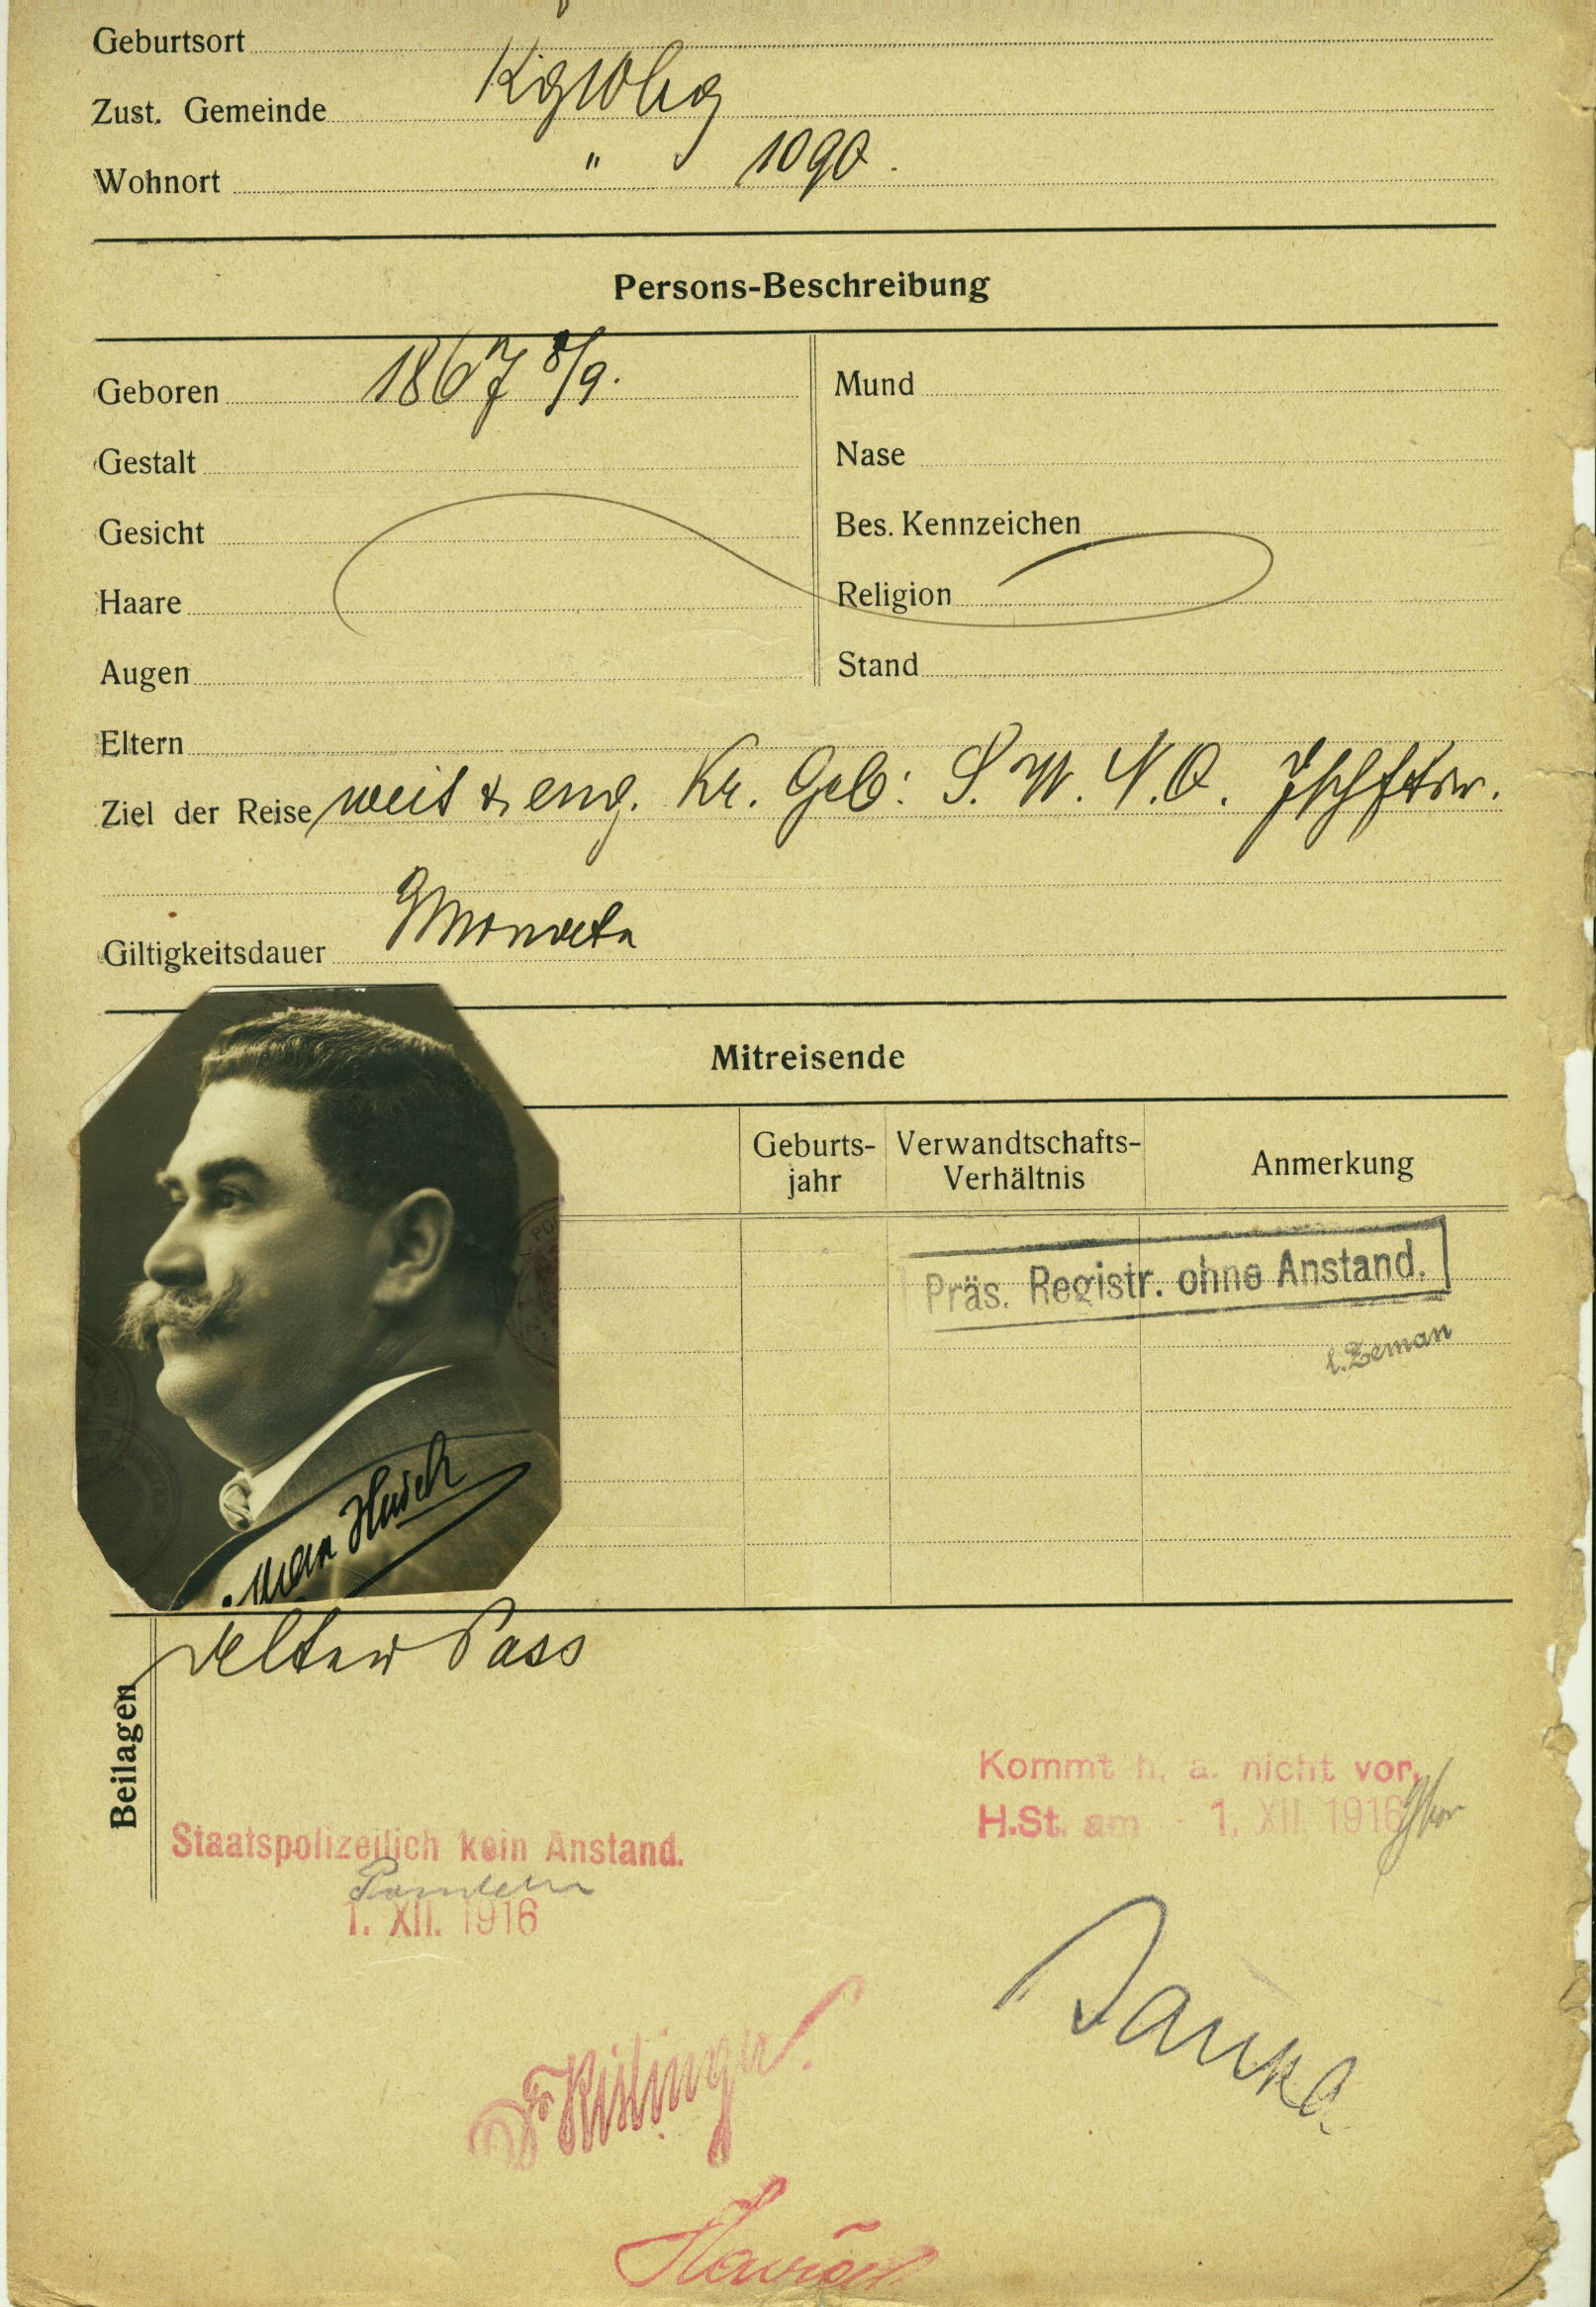 Geburtsort
Zust. Gemeinde Kgwbg
Wohnort " 1090.
Persons-Beschreibung
Geboren 1867 8/9.
Gestalt
Gesicht
Haare
Augen
Mund
Nase
Bes. Kennzeichen
Religion
Stand
Eltern
Ziel der Reise weit & eng. Kr. Geb: S. W. N. O.
Giltigkeitsdauer
Mitreisende
Geburts-
jahr
Verwandtschafts-
Verhältnis
Anmerkung
Präs. Registr. ohne Anstand.
l. Zeman
Max Husch
Beilagen
alter Pass
Kommt h. a. nicht vor,
H.St. am - 1. XII. 1916
Staatspolizeilich kein Anstand.
1. XII. 1916